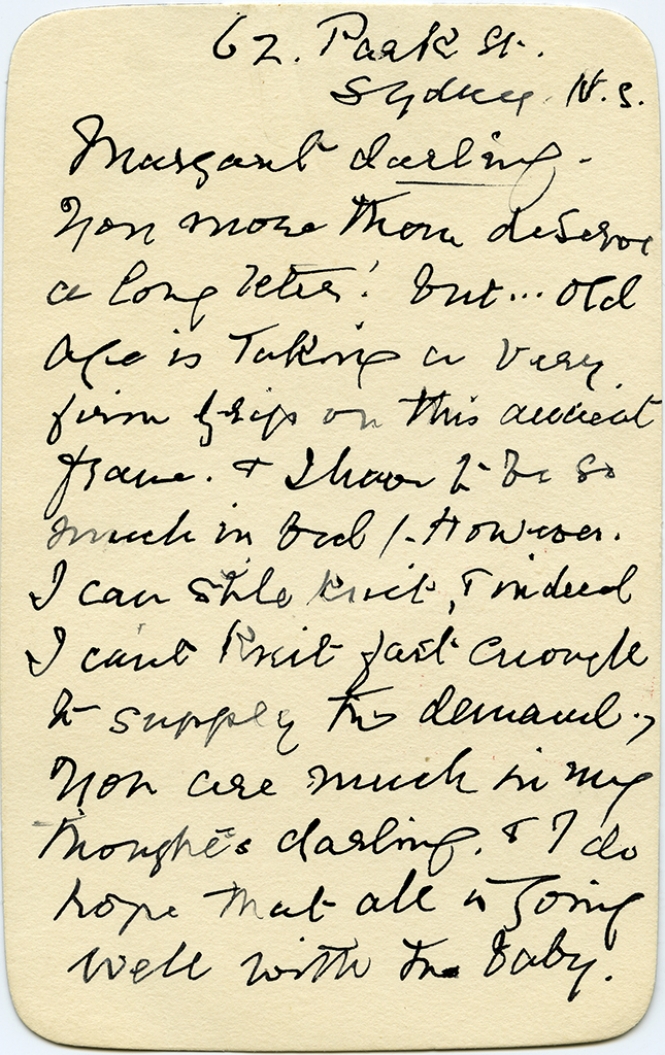 62. Park St.
Sydney. N.S.
Margaret darling.
You more than deserve
a long letter! but... old
age is taking a very
firm grip on this ancient
frame. & I have to be so
much in bed!. However.
I can still knit, & indeed
I cant knit fast enough
to supply the demand.,
You are much in my
thoughts darling. & I do
hope that all is going
well with the baby.